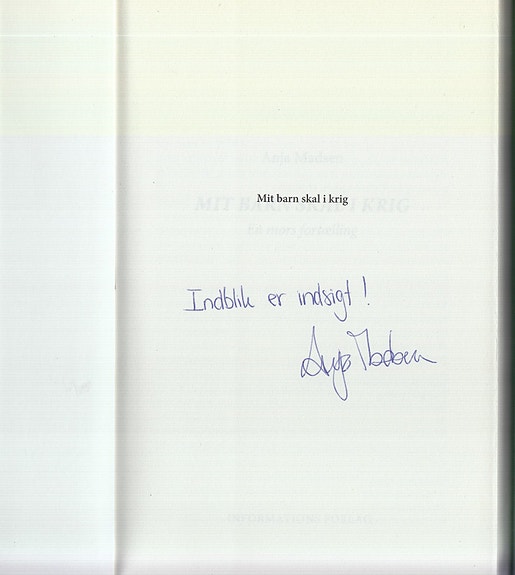 Anja Madsen
Mit barn skal i krig
MIT BARN SKAL I KRIG
En mors fortælling
Indblik er indsigt!
Anja Madsen
INFORMATIONS FORLAG